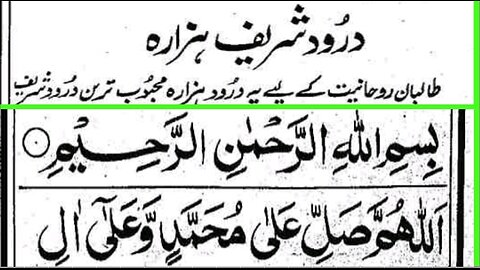 درود شریف ہزارہ
طالبان روحانیت کے لیے یہ درود ہزارہ محبوب ترین درود شریف
بِسْمِ اللهِ الرَّحْمٰنِ الرَّحِيْمِ
اَللّٰهُمَّ صَلِّ عَلٰى مُحَمَّدٍ وَّعَلٰٓى اٰلِ